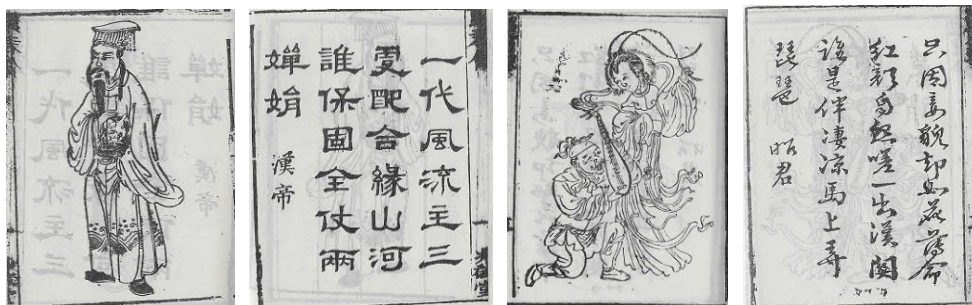 一代風流主三
更配合緣山河
誰保固全仗兩
嬋娟 漢帝
只因妾貌却如花薄命
紅顏自怨嗟一出漢關
誰是伴凄凉馬上弄
琵琶 昭君